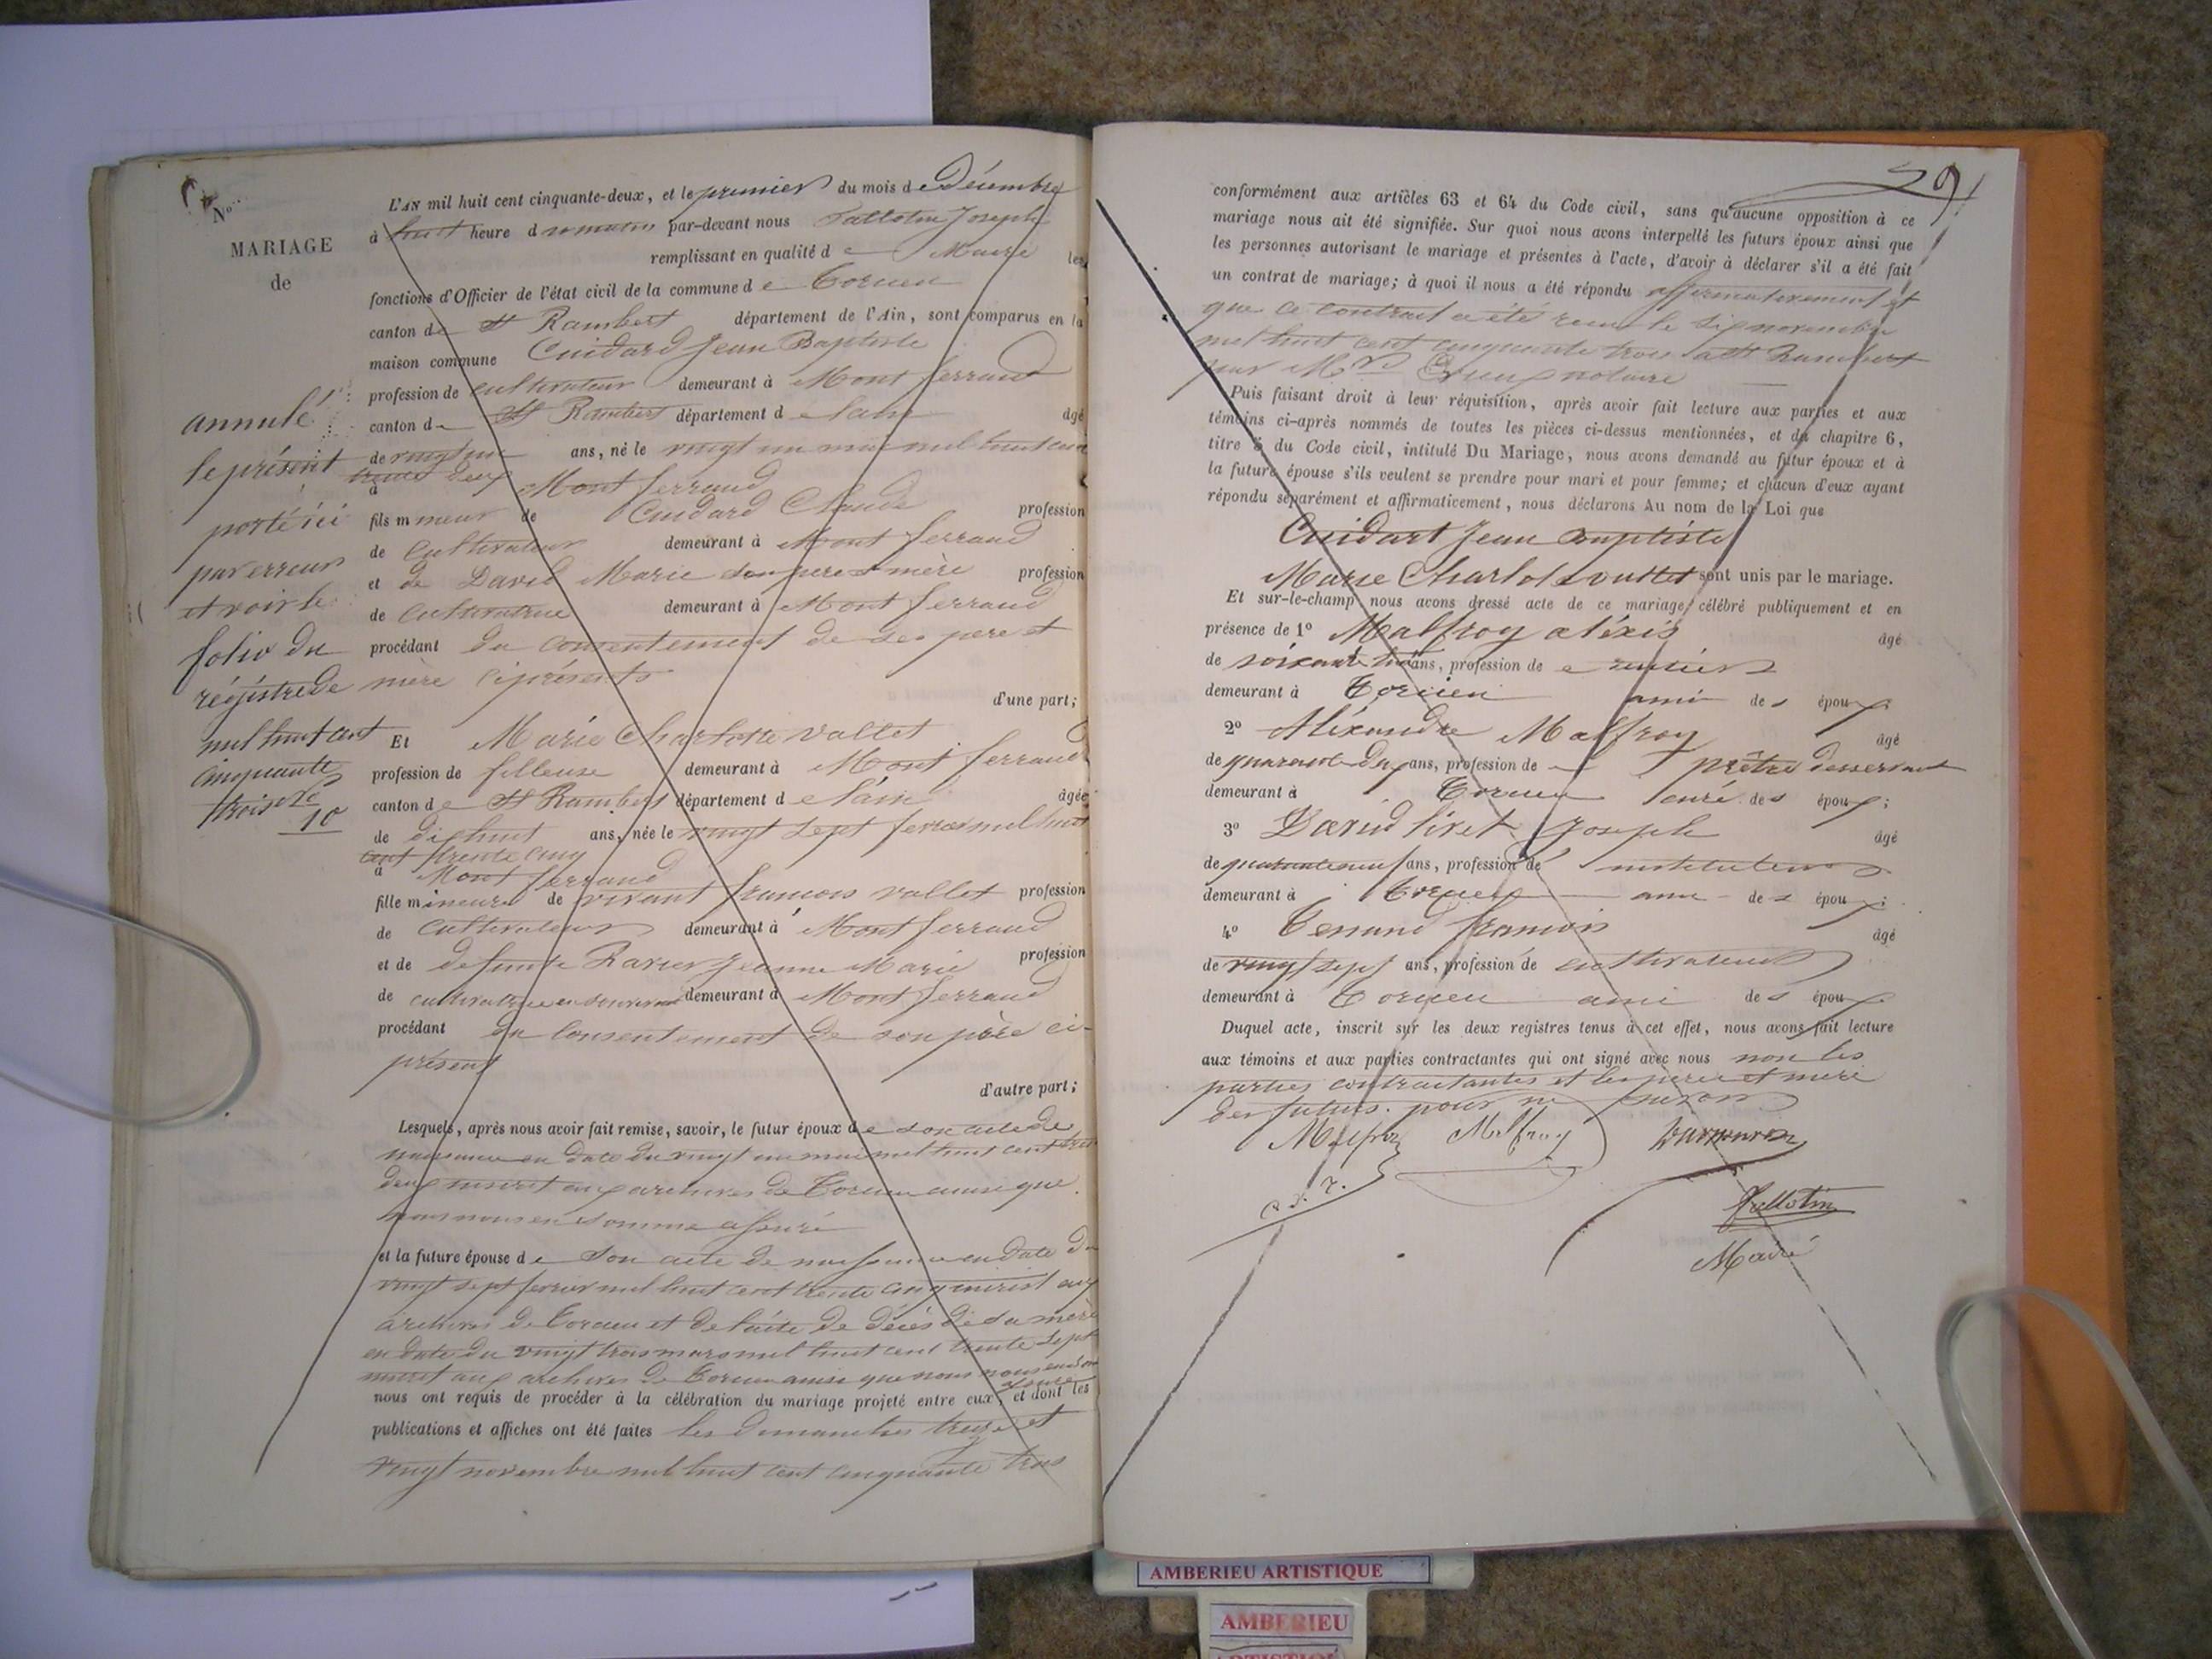 N°
MARIAGE
de
annulé
le présent
porté ici
par erreur
et voir le
folio du
régistre de
mil huit cent
cinquante
trois N°
10
L'AN mil huit cent cinquante-deux, et le premier du mois de Décembre
à huit heure du matin par-devant nous Tallotin Joseph
remplissant en qualité de Maire les
fonctions d'Officier de l'état civil de la commune de Torcieu
canton de St Rambert département de l'Ain, sont comparus en la
maison commune Cuidard Jean Baptiste
profession de cultivateur demeurant à Mont ferrand
canton de St Rambert département de l'ain âgé
de vingt un ans, né le vingt un mai mil huit cent
trente deux
à Mont ferrand
fils mineur de Cuidard Claude profession
de Cultivateur demeurant à Mont ferrand
et de David Marie son pere et mère profession
de Cultivatrice demeurant à Mont ferrand
procédant du consentement de ses pere et
mère ci présents
d'une part;
Et Marie Charlotte Vallet
profession de fileuse demeurant à Mont ferrand
canton de St Rambert département de l'ain âgée
de dix huit ans, née le vingt sept fevrier mil huit
cent trente cinq
à Mont ferrand
fille mineure de vivant francois vallet profession
de Cultivateur demeurant à Mont ferrand
et de defunte Ravier Jeanne Marie profession
de cultivatrice en son vivant demeurant à Mont ferrand
procédant du Consentement de son père ci-
présent
d'autre part;
Lesquels, après nous avoir fait remise, savoir, le futur époux de son acte de
naissance en date du vingt un mai mil huit cent trente
deux inscrit aux archives de Torcieu ainsi que
nous nous en somme assuré
et la future épouse de Son acte de naissance en date du
vingt sept fevrier mil huit cent trente cinq inscrit aux
archives de Torcieu et de l'acte de décès de sa mère
en date du vingt trois mars mil huit cent trente sept
inscrit aux archives de Torcieu ainsi que nous nous en som
assuré
nous ont requis de procéder à la célébration du mariage projeté entre eux, et dont les
publications et affiches ont été faites les dimanches treize et
vingt novembre mil huit cent cinquante trois
59
conformément aux articles 63 et 64 du Code civil, sans qu'aucune opposition à ce
mariage nous ait été signifiée. Sur quoi nous avons interpellé les futurs époux ainsi que
les personnes autorisant le mariage et présentes à l'acte, d'avoir à déclarer s'il a été fait
un contrat de mariage; à quoi il nous a été répondu affirmativement et
que ce contrat a été recu le six novembre
mil huit cent cinquante trois à St Rambert
par Mr notaire
Puis faisant droit à leur réquisition, après avoir fait lecture aux parties et aux
témoins ci-après nommés de toutes les pièces ci-dessus mentionnées, et du chapitre 6,
titre 5 du Code civil, intitulé Du Mariage, nous avons demandé au futur époux et à
la future épouse s'ils veulent se prendre pour mari et pour femme; et chacun d'eux ayant
répondu séparément et affirmativement, nous déclarons Au nom de la Loi que
Cuidart Jean Baptiste
Marie Charlote vallet sont unis par le mariage.
Et sur-le-champ nous avons dressé acte de ce mariage, célébré publiquement et en
présence de 1° Malfroy aléxis âgé
de soixante ans, profession de rentier
demeurant à Torcieu ami des époux;
2° Aléxandre Malfroy âgé
de quarante deux ans, profession de prêtre desservant
demeurant à Torcieu curé des époux;
3° David livet Joseph âgé
de quarante neuf ans, profession de instituteur
demeurant à Torcieu ami des époux;
4° Tenand françois âgé
de vingt sept ans, profession de cultivateur
demeurant à Torcieu ami des époux
Duquel acte, inscrit sur les deux registres tenus à cet effet, nous avons fait lecture
aux témoins et aux parties contractantes qui ont signé avec nous non les
parties contractantes et les pere et mere
des futurs. pour ne savoir
Malfroy Malfroy
Tallotin
Maire
AMBERIEU ARTISTIQUE
AMBERIEU
ARTISTIQUE